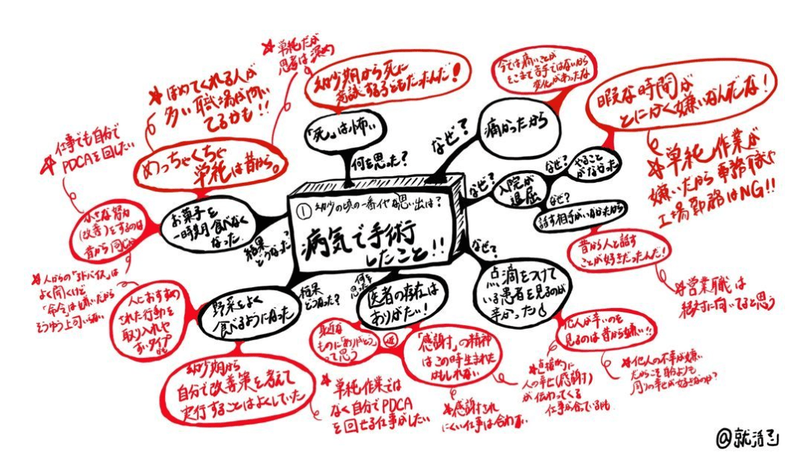 ①幼少の頃の一番古い思い出は？
病気で手術
したこと!!
何を思った？
「死」は怖い
幼少期から死に
なぜ？
痛かったから
今では痛いことが
なぜ？
入院が
退屈
なぜ？
やること
がなかった
暇な時間が
とにかく嫌いなんだな！
☆単純作業が
嫌いだから事務職や
工場勤務はNG!!
なぜ？
話す相手がいなかったから
昔から人と話す
ことが好きだったんだ！
☆営業職は
絶対に向いてると思う
なぜ？
点滴をつけて
いる患者を見るのが
辛かった
他人が辛いのを
見るのは昔から嫌い!!
☆他人の不幸が嫌い
医者の存在は
ありがたい！
「感謝」の精神
はこの時生まれた
かもしれない
ものに「ありがとう」
って思う
☆感謝され
にくい仕事は合わない
☆直接的に
人の幸せ(感謝)
が伝わってくる
仕事が合っているかも
結果
どうなった？
野菜をよく
食べるようになった
人におすすめ
された行動を
取り入れや
すいタイプ
☆人からの「アドバイス」は
よく聞くけど
「命令」は嫌いだから
幼少期から
自分で改善策を考えて
実行することはよくしていた
☆単純作業では
なく自分でPDCA
を回せる仕事がしたい
結果
どうなった？
お菓子を
一時期食べなく
なった
めっちゃくちゃ
単純は昔から。
☆ほめてくれる人が
多い職場が向い
てるかも!!
☆単純だが
思考は深め
小さな努力
(改善)をするのは
☆仕事でも自分で
PDCAを回したい
@就活こ